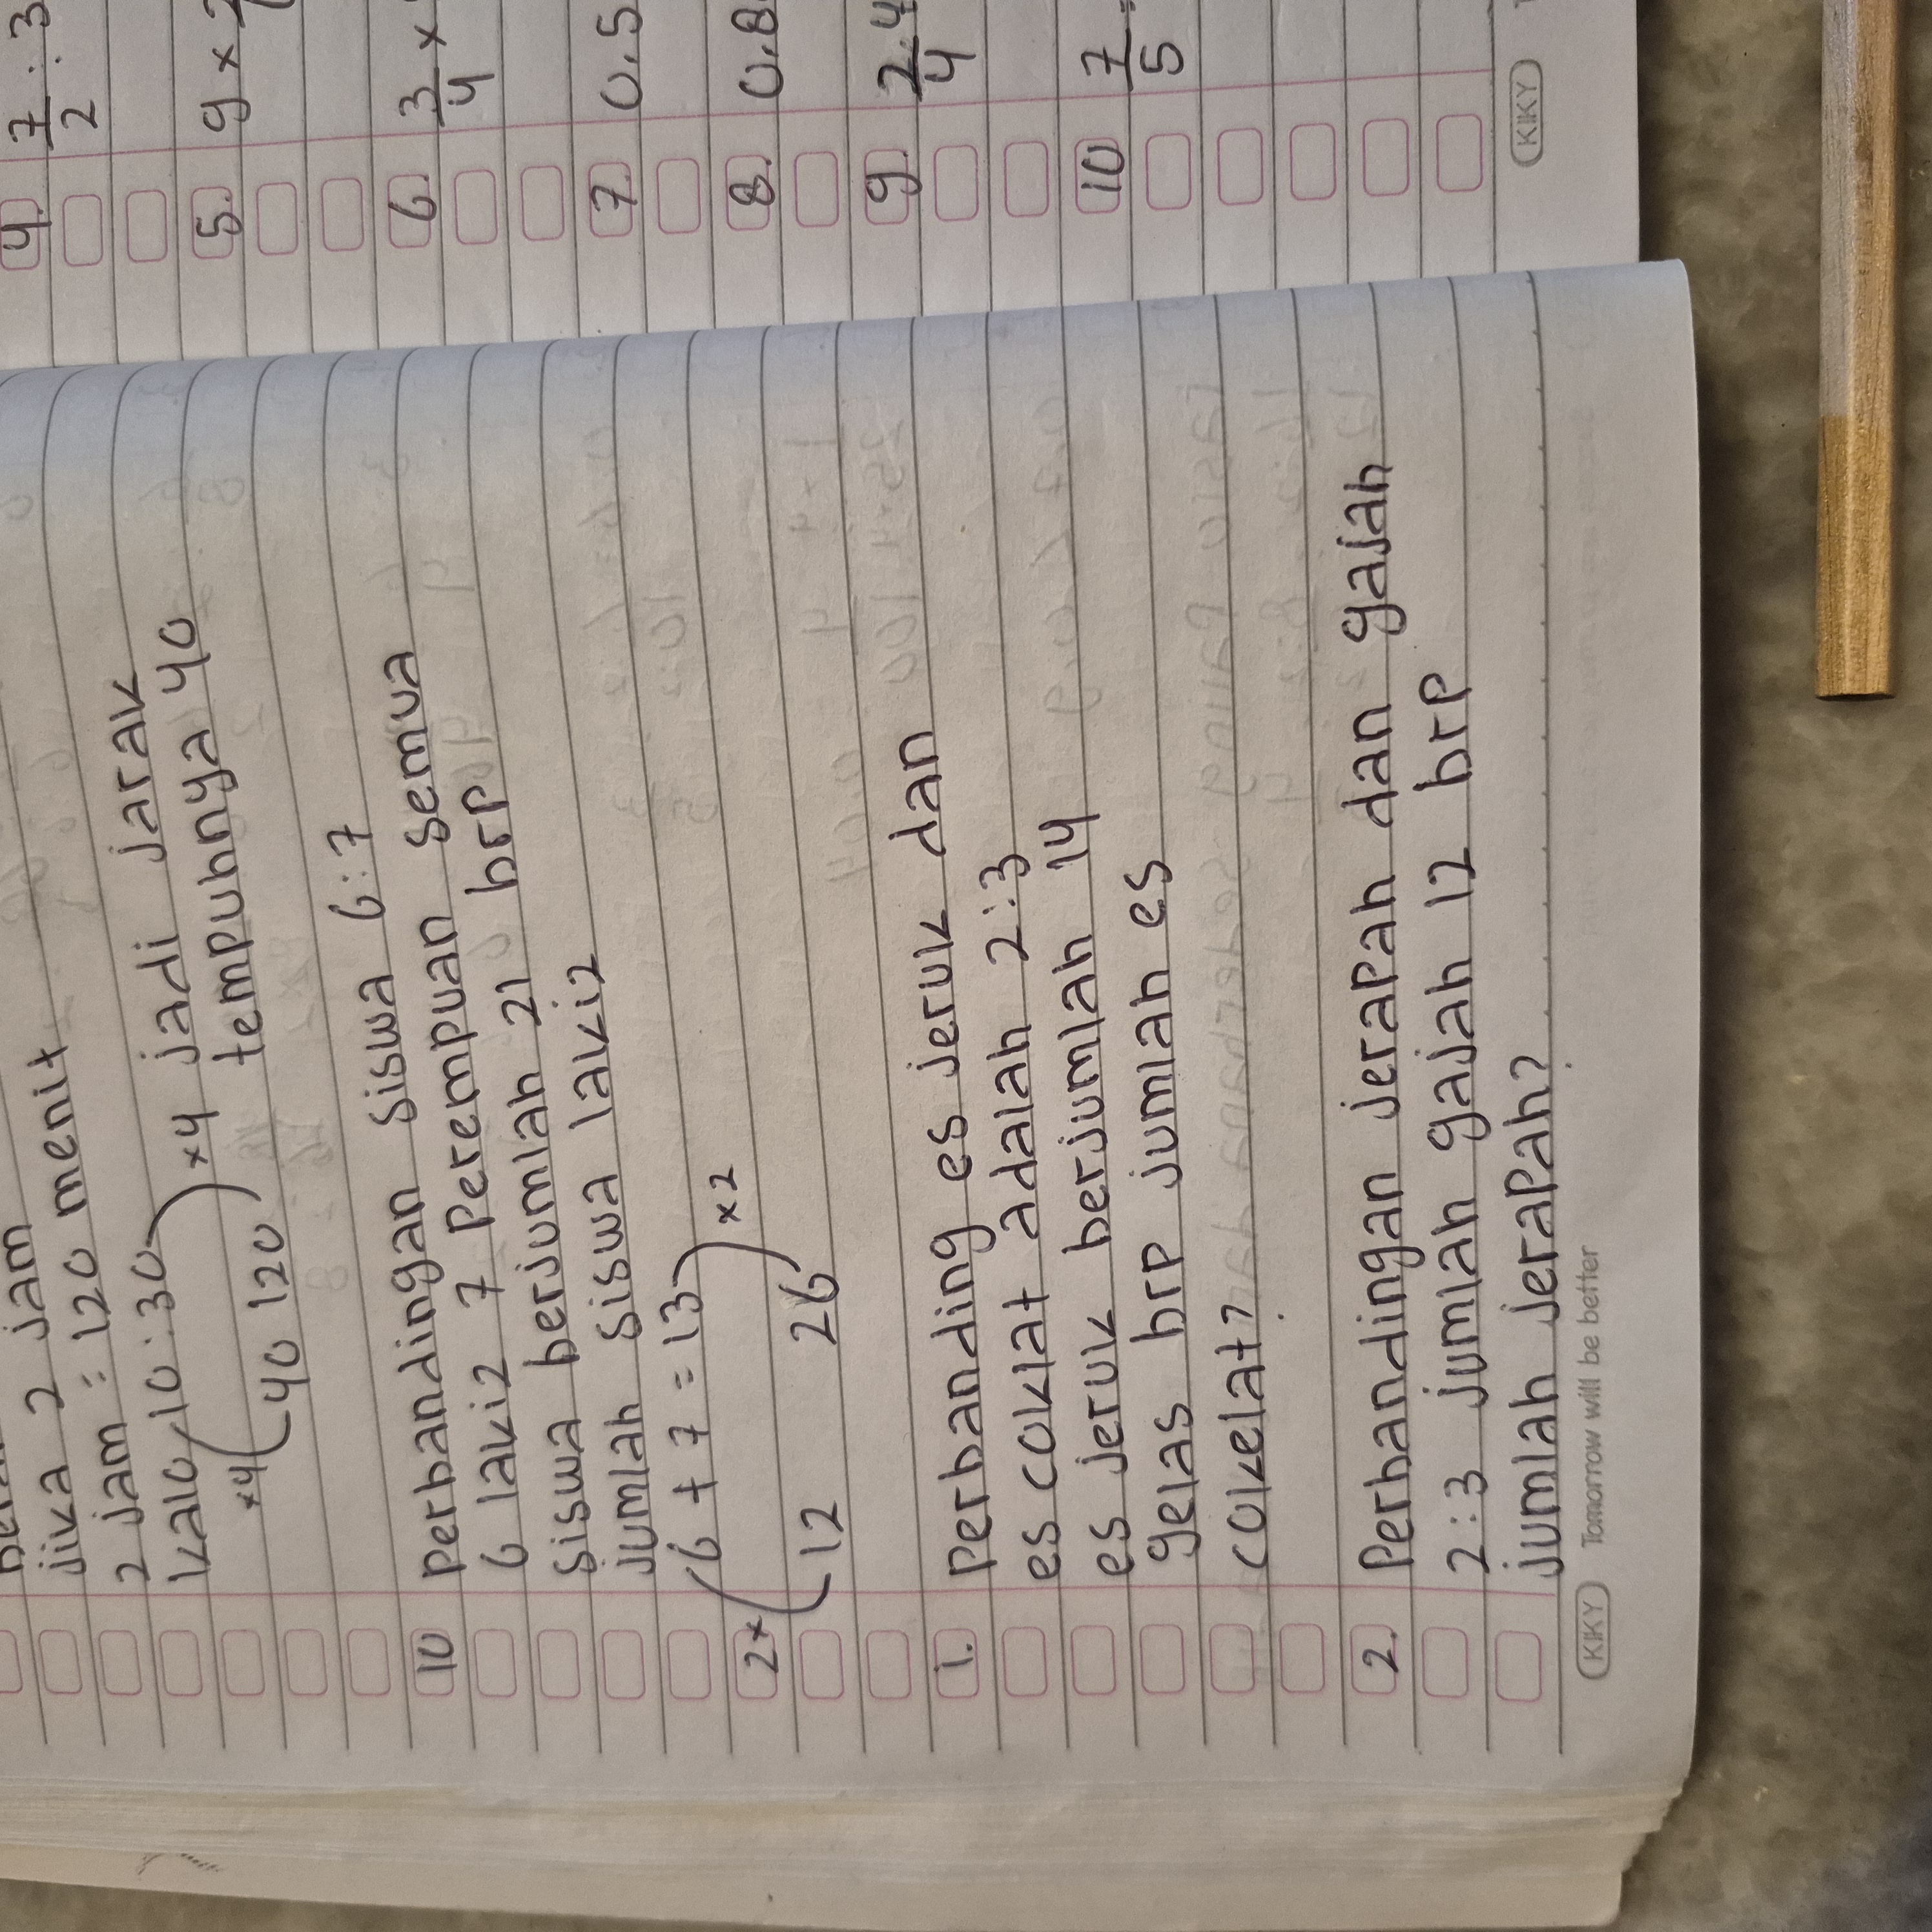 jika 2 jam
2 jam = 120 menit
kalo 10 : 30
×4
×4
jadi jarak
tempuhnya 40
40 120
10 Perbandingan siswa 6:7
6 laki2 7 Perempuan semua
siswa berjumlah 21 brp
jumlah siswa laki2
6 + 7 = 13
2×
×2
12 26
1. Perbanding es jeruk dan
es coklat adalah 2:3
es jeruk berjumlah 14
gelas brp jumlah es
cokelat?
2. Perbandingan jerapah dan gajah
2:3 jumlah gajah 12 brp
jumlah jerapah?
KIKY Tomorrow will be better
4. 7/2 : 3
5. 9 × 2
6. 3/4 ×
7. 0.5
8. 0.8
9. 2.4/4
10 7/5 =
KIKY